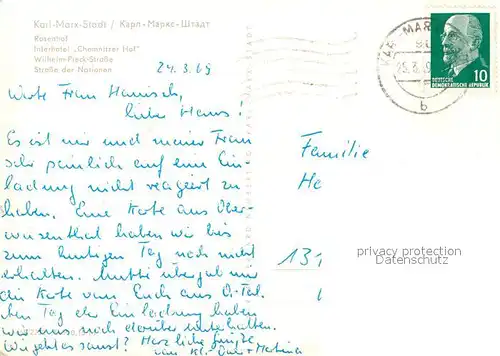 Karl-Marx-Stadt / Карл-Маркс-Штадт
Rosenhof
Interhotel „Chemnitzer Hof"
Wilhelm-Pieck-Straße
Straße der Nationen
24.3.69
Werte Frau Hanisch,
lieber Hans!
Es ist mir und meiner Frau
sehr peinlich auf eine Ein-
ladung nicht reagiert zu
haben. Eine Karte aus Ober-
wiesenthal haben wir bis
zum heutigen Tag noch nicht
erhalten. Mutti übergab mir
die Karte von Euch aus O.-Tal.
Den Tag der Einladung haben
wir uns noch darüber unterhalten.
Wie geht es sonst? Herzliche Grüße
von Kl. + Martina
KARL MARX
25.3.69
b
DEUTSCHE
DEMOKRATISCHE REPUBLIK
10
Familie
He
131
privacy protection
Datenschutz